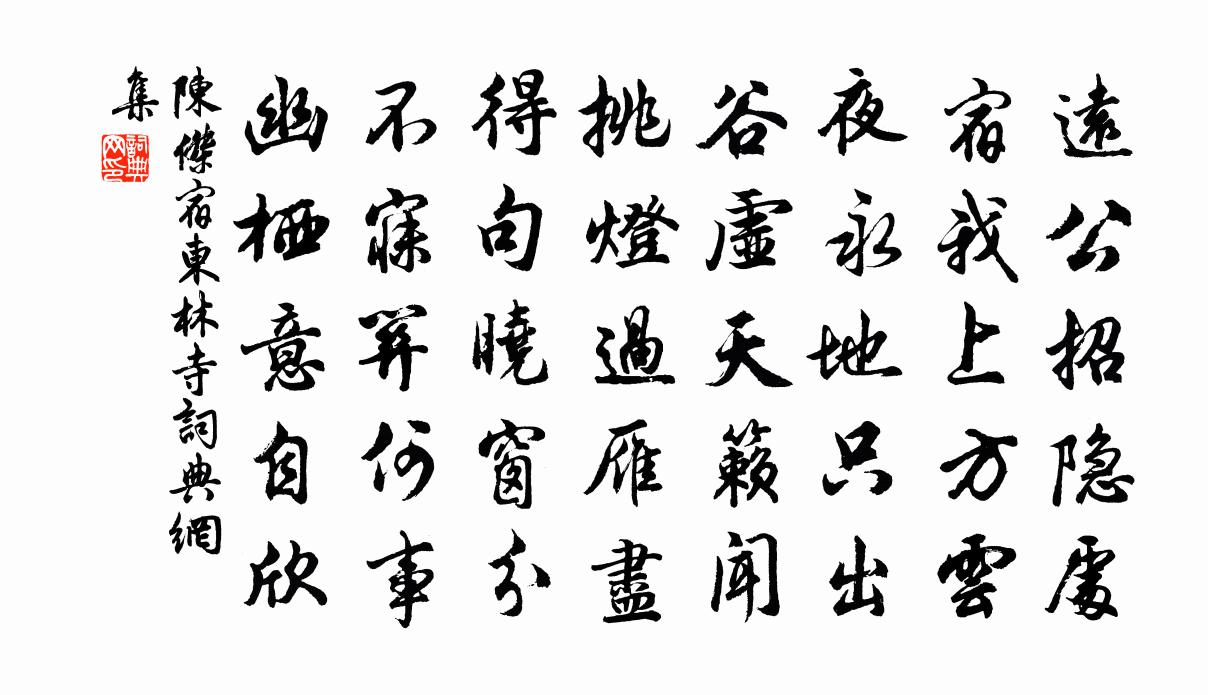 遠公招隐處
宿我上方雲
夜永地只出
谷虛天籟聞
挑燈過雁盡
得句曉窗分
不寐羿何事
幽栖意自欣
陳傑宿東林寺詞典網
集
詞典网印